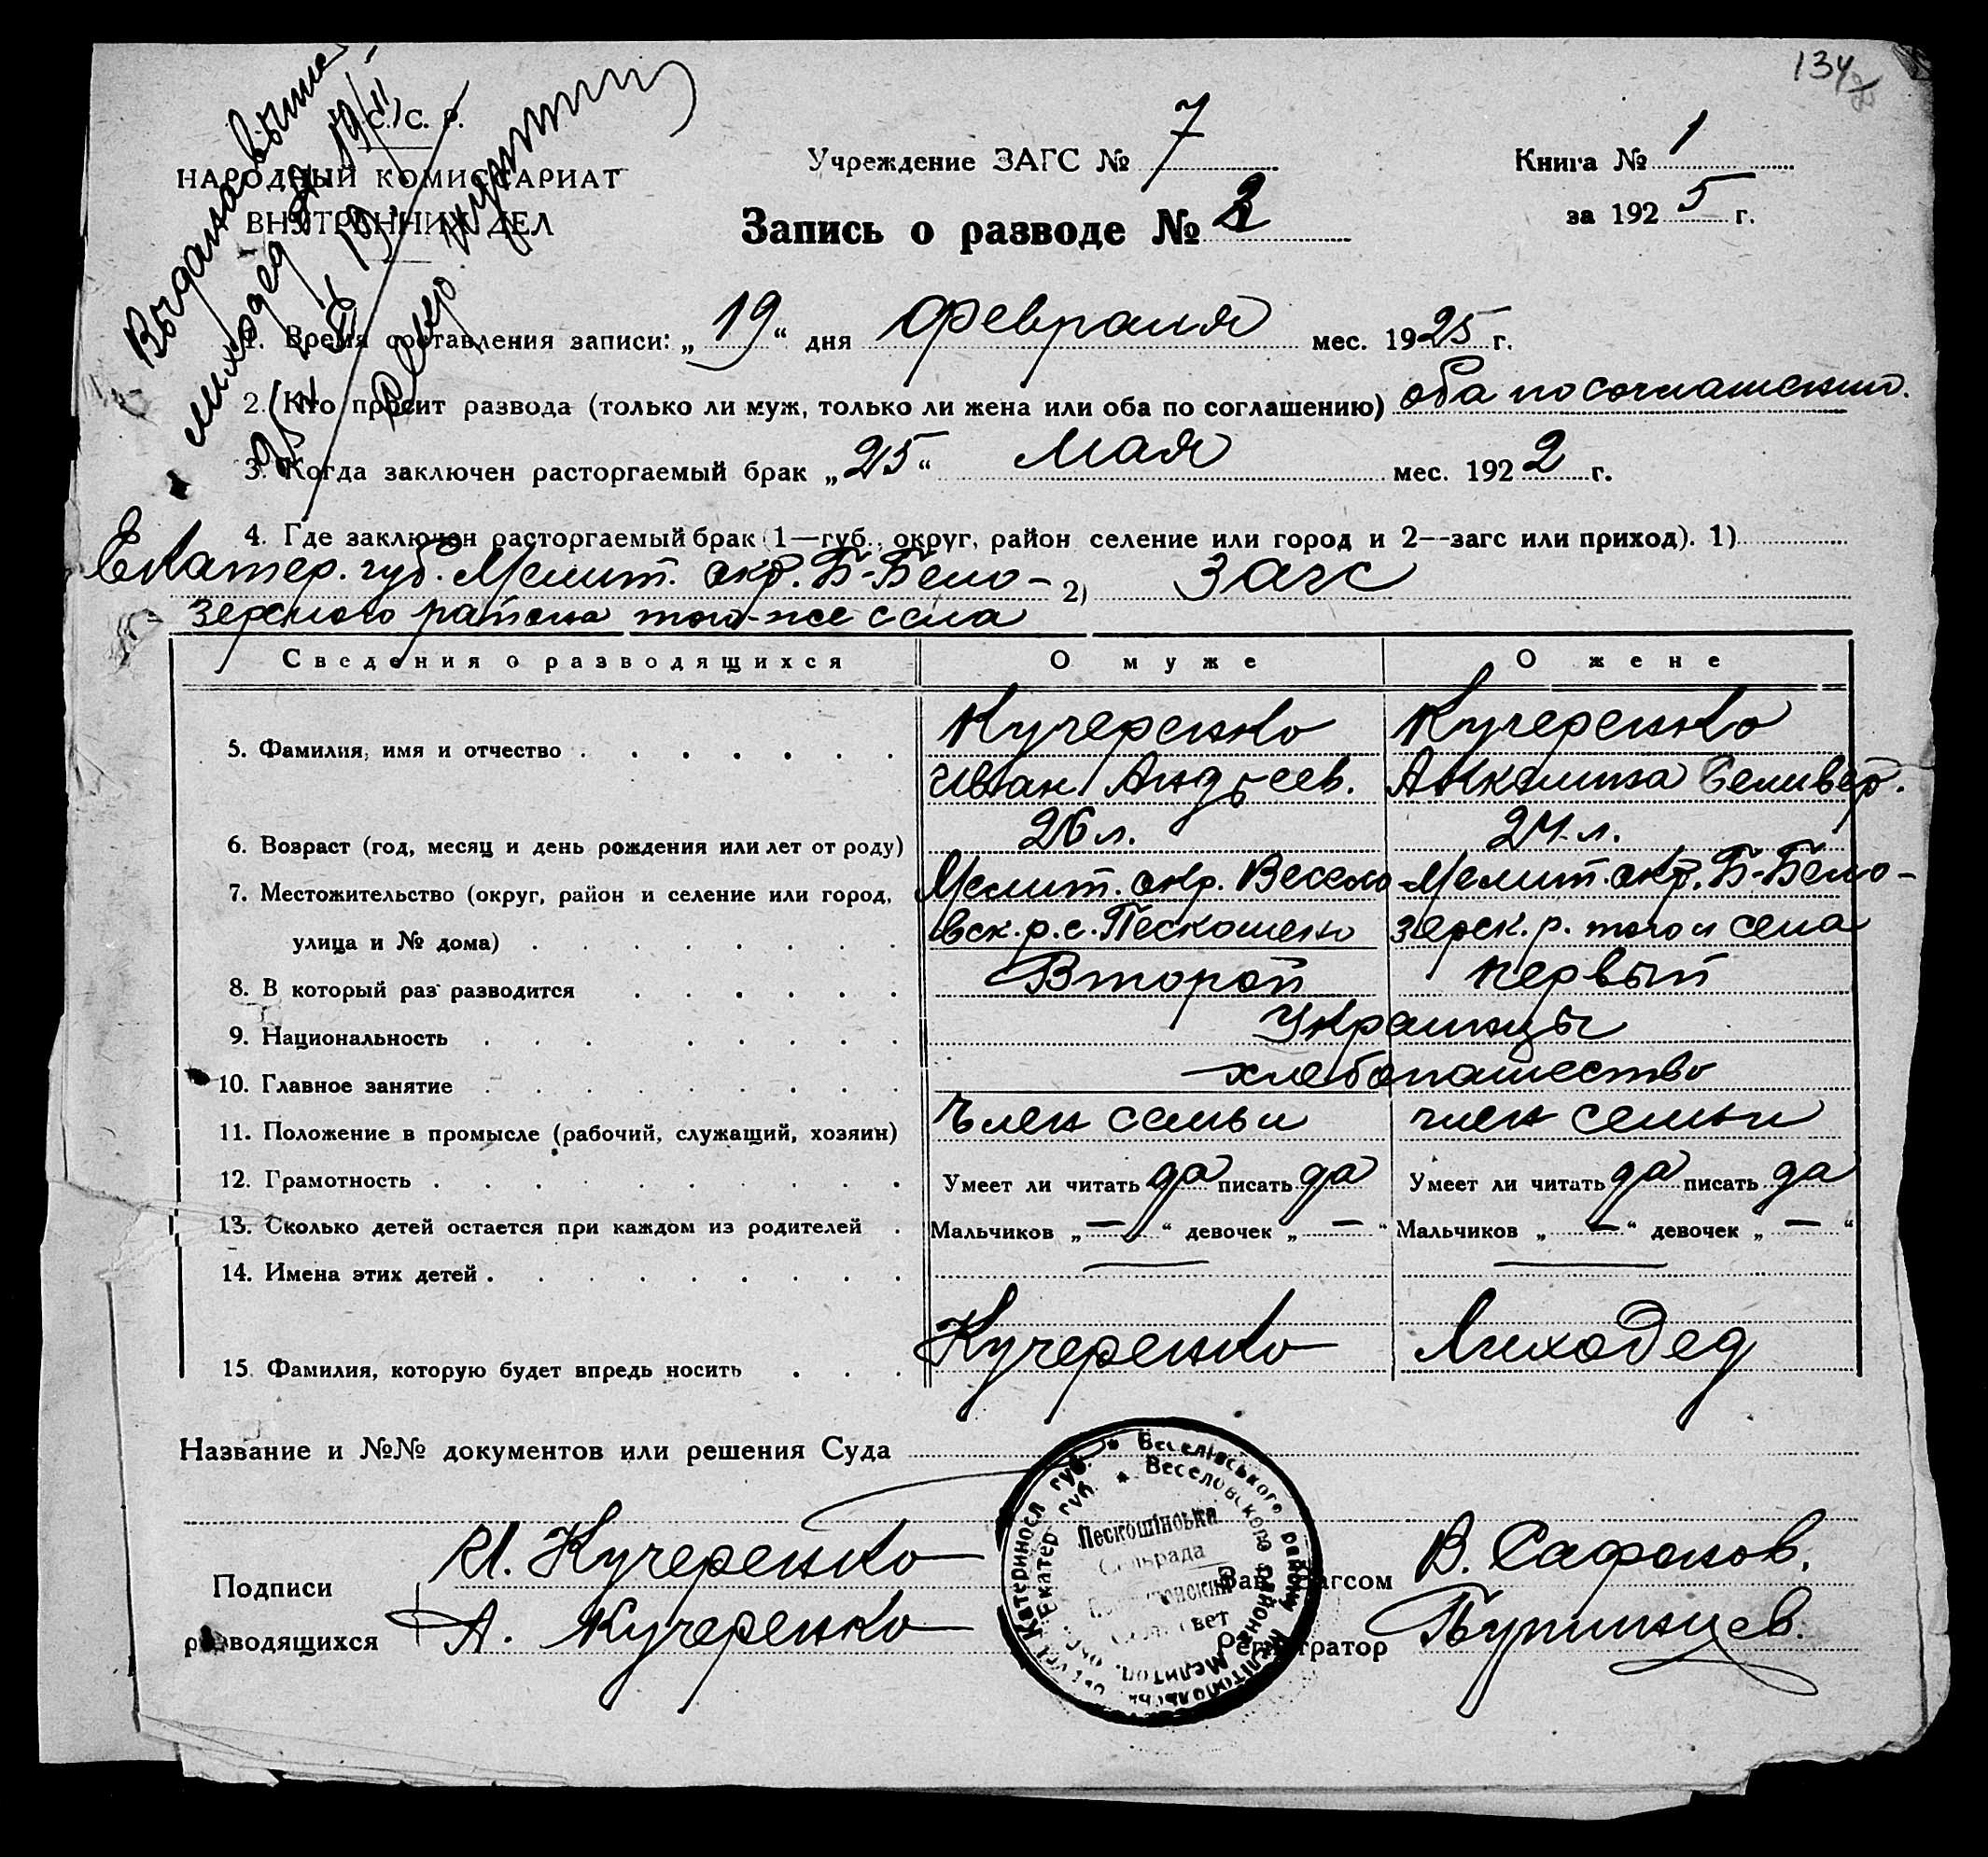 134
С. С. Р.
НАРОДНЫЙ КОМИССАРИАТ
ВНУТРЕННИХ ДЕЛ
Выдана выпис
лиходед
Учреждение ЗАГС № 7
Книга № 1
за 1925 г.
Запись о разводе № 2
1. Время составления записи: „19“ дня Февраля мес. 1925 г.
2. Кто просит развода (только ли муж, только ли жена или оба по соглашению) оба по соглашению.
3. Когда заключен расторгаемый брак „25“ Мая мес. 1922 г.
4. Где заключен расторгаемый брак (1—губ., округ, район селение или город и 2—загс или приход). 1)
Екатер. губ. Мелит. окр. Б-Бело- 2) Загс
зерского района того-же села
Сведения о разводящихся О муже О жене
5. Фамилия, имя и отчество Кучеренко Кучеренко
Иван Андреев. Аккилина Селивер.
6. Возраст (год, месяц и день рождения или лет от роду) 26 л. 24 л.
7. Местожительство (округ, район и селение или город, Мелит. окр. Весело- Мелит. окр. Б-Бело-
улица и № дома) вск. р. с. Пескошено зерск. р. того и села
8. В который раз разводится Второй первый
9. Национальность Украинцы
10. Главное занятие хлебопашество
11. Положение в промысле (рабочий, служащий, хозяин) Член семьи член семьи
12. Грамотность Умеет ли читать да писать да Умеет ли читать да писать да
13. Сколько детей остается при каждом из родителей Мальчиков „—“ девочек „—“ Мальчиков „—“ девочек „—“
14. Имена этих детей — —
15. Фамилия, которую будет впредь носить Кучеренко Лиходед
Название и №№ документов или решения Суда
Подписи И. Кучеренко
разводящихся А. Кучеренко
Зав. Загсом В. Сафонов.
Регистратор
Катериносл губ. * Веселівського району Мелітопольск
Екатер губ * Веселовского района Мелитоп. окр.
Пескошінська
Сельрада